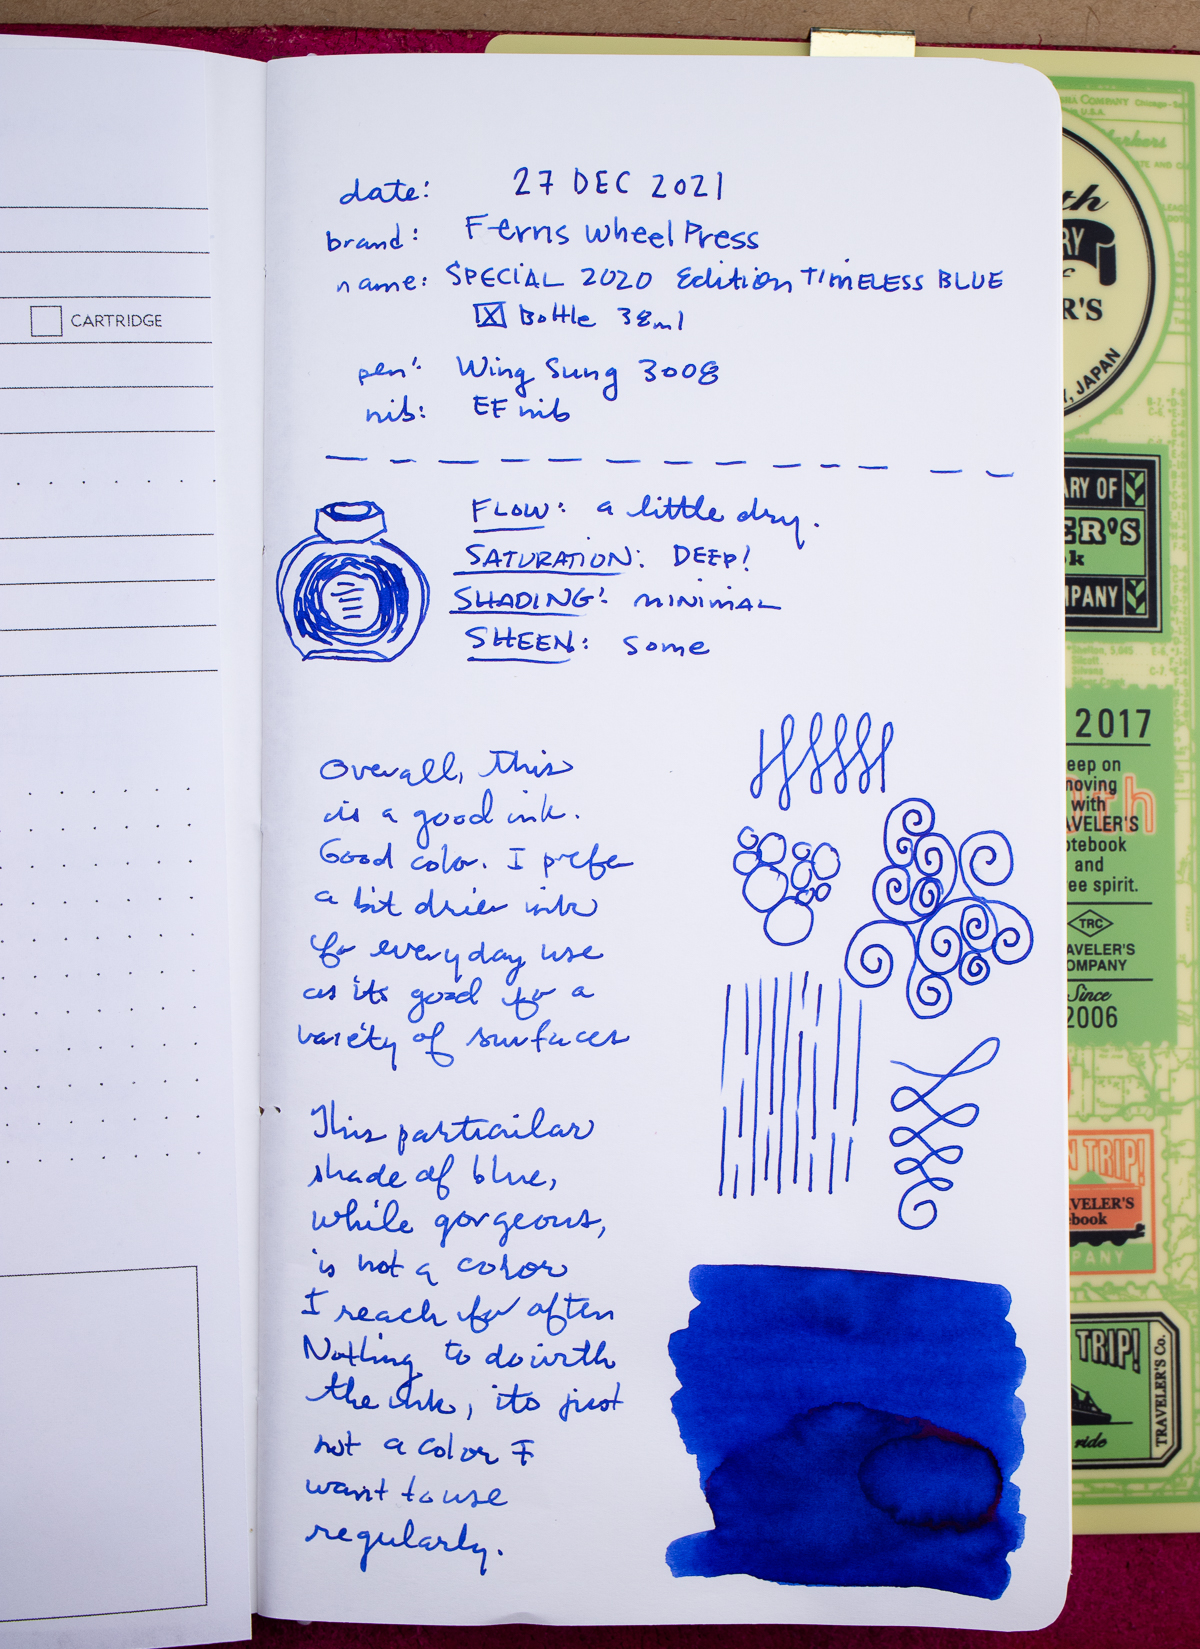 CARTRIDGE
date: 27 DEC 2021
brand: Ferris Wheel Press
name: SPECIAL 2020 Edition TIMELESS BLUE
Bottle 38ml
pen: Wing Sung 3008
nib: EF nib
FLOW: a little dry.
SATURATION: DEEP!
SHADING: MINIMAL
SHEEN: Some
Overall, this
is a good ink.
Good color. I prefer
a bit drier ink
for everyday use
as its good for a
variety of surfaces
This particular
shade of blue,
while gorgeous,
is not a color
I reach for often
Nothing to do with
the ink, its just
not a color I
want to use
regularly.
COMPANY
U.S.A.
JAPAN
ARY OF
ER'S
k
MPANY
2017
eep on
moving
with
AVELER'S
otebook
and
ee spirit.
TRC
AVELER'S
OMPANY
Since
2006
N TRIP!
VELER'S
book
PANY
TRIP!
ride
TRAVELER'S Co.